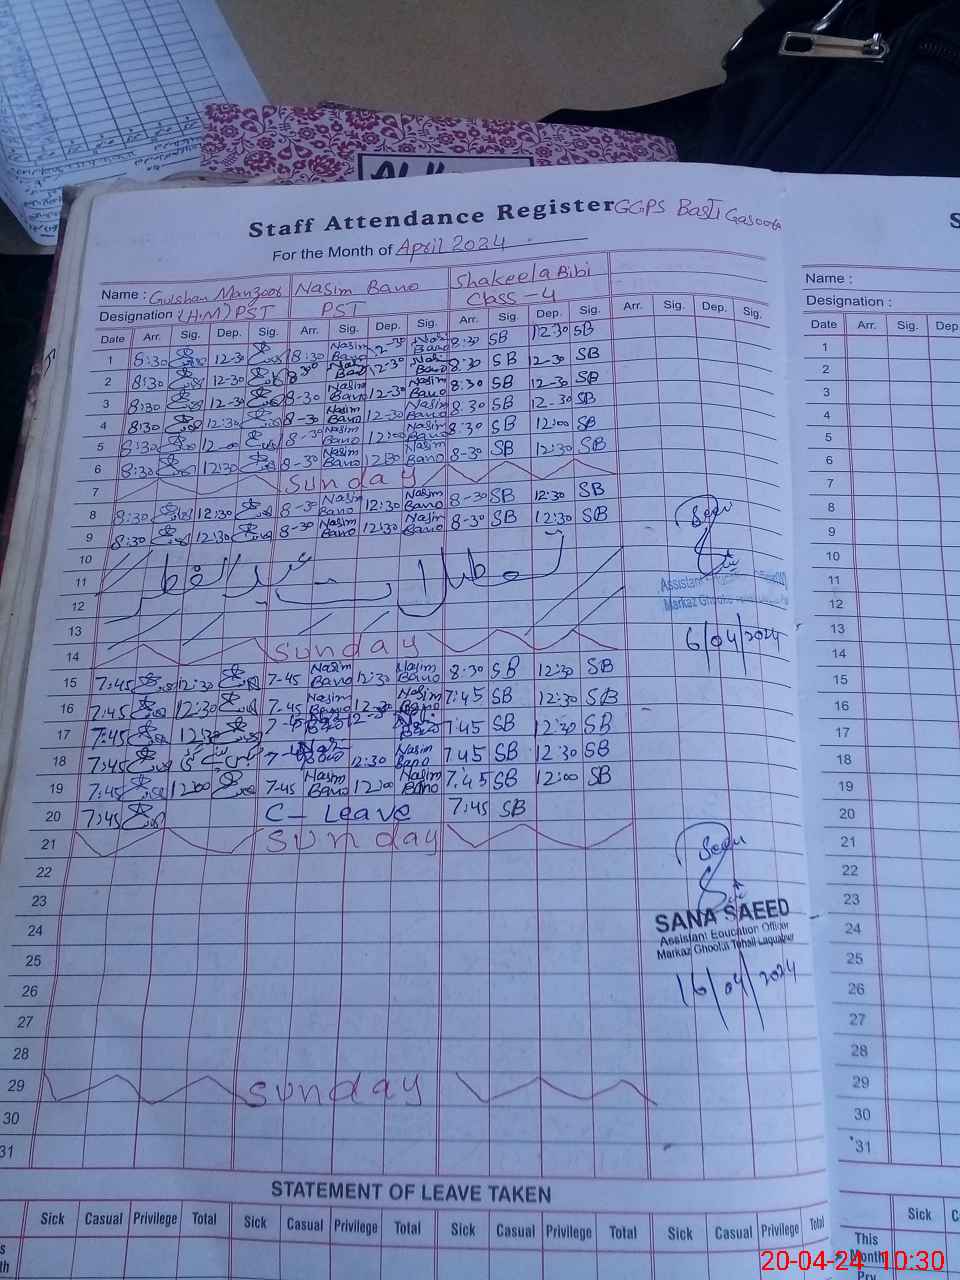 Staff Attendance Register GGPS Basti Gasoora
For the Month of April 2024
Name : Gulshan Manzoor Nasim Bano Shakeela Bibi
Designation (H.M) PST PST Class-4
Date Arr. Sig. Dep. Sig. Arr. Sig. Dep. Sig. Arr. Sig. Dep. Sig. Arr. Sig. Dep. Sig.
1 8:30 12-30 8:30 Nasim Bano 12-30 Nasim Bano 8:30 SB 12-30 SB
2 8:30 12-30 8-30 Nasim Bano 12-30 Nasim Bano 8:30 SB 12-30 SB
3 8:30 12-30 8-30 Nasim Bano 12-30 Nasim Bano 8:30 SB 12-30 SB
4 8:30 12:30 8-30 Nasim Bano 12-30 Nasim Bano 8.30 SB 12-30 SB
5 8:30 12-00 8-30 Nasim Bano 12:00 Nasim Bano 8:30 SB 12:00 SB
6 8:30 12:30 8-30 Nasim Bano 12:30 Nasim Bano 8-30 SB 12:30 SB
7 Sunday
8 8:30 12:30 8-30 Nasim Bano 12:30 Nasim Bano 8-30 SB 12:30 SB
9 8:30 12:30 8-30 Nasim Bano 12:30 Nasim Bano 8-30 SB 12:30 SB
10
11 تعطیلات عیدالفطر
12
Assistant
Markaz Ghooka
13
6/04/2024
14 Sunday
15 7:45 12:30 7-45 Nasim Bano 12:30 Nasim Bano 8:30 SB 12:30 SB
16 7:45 12:30 7-45 Nasim Bano 12-30 Nasim Bano 7:45 SB 12:30 SB
17 7:45 12:30 7-45 12-30 7:45 SB 12:30 SB
18 7:45 7-45 12:30 Nasim Bano 7.45 SB 12:30 SB
19 7:45 12:00 7-45 Nasim Bano 12:00 Nasim Bano 7:45 SB 12:00 SB
20 7:45 C- Leave 7:45 SB
21 Sunday
22
23
24
SANA SAEED
Assistant Education Officer
Markaz Ghooka Tehsil Liaquatpur
25
26
16/04/2024
27
28
29 Sunday
30
31
STATEMENT OF LEAVE TAKEN
Sick Casual Privilege Total Sick Casual Privilege Total Sick Casual Privilege Total Sick Casual Privilege Total
S
Name :
Designation :
Date Arr. Sig. Dep
1
2
3
4
5
6
7
8
9
10
11
12
13
14
15
16
17
18
19
20
21
22
23
24
25
26
27
28
29
30
31
Sick C
This
Month
20-04-24 10:30